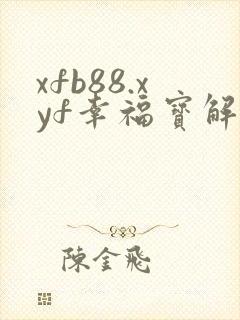 xfb88.x
yf幸福寶解
陳金飛